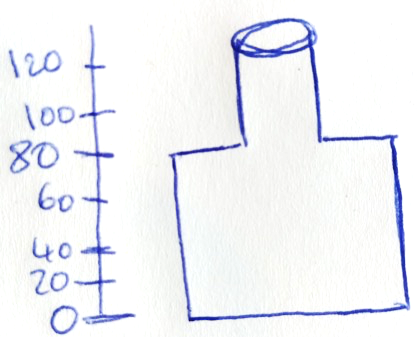 120
100
80
60
40
20
0